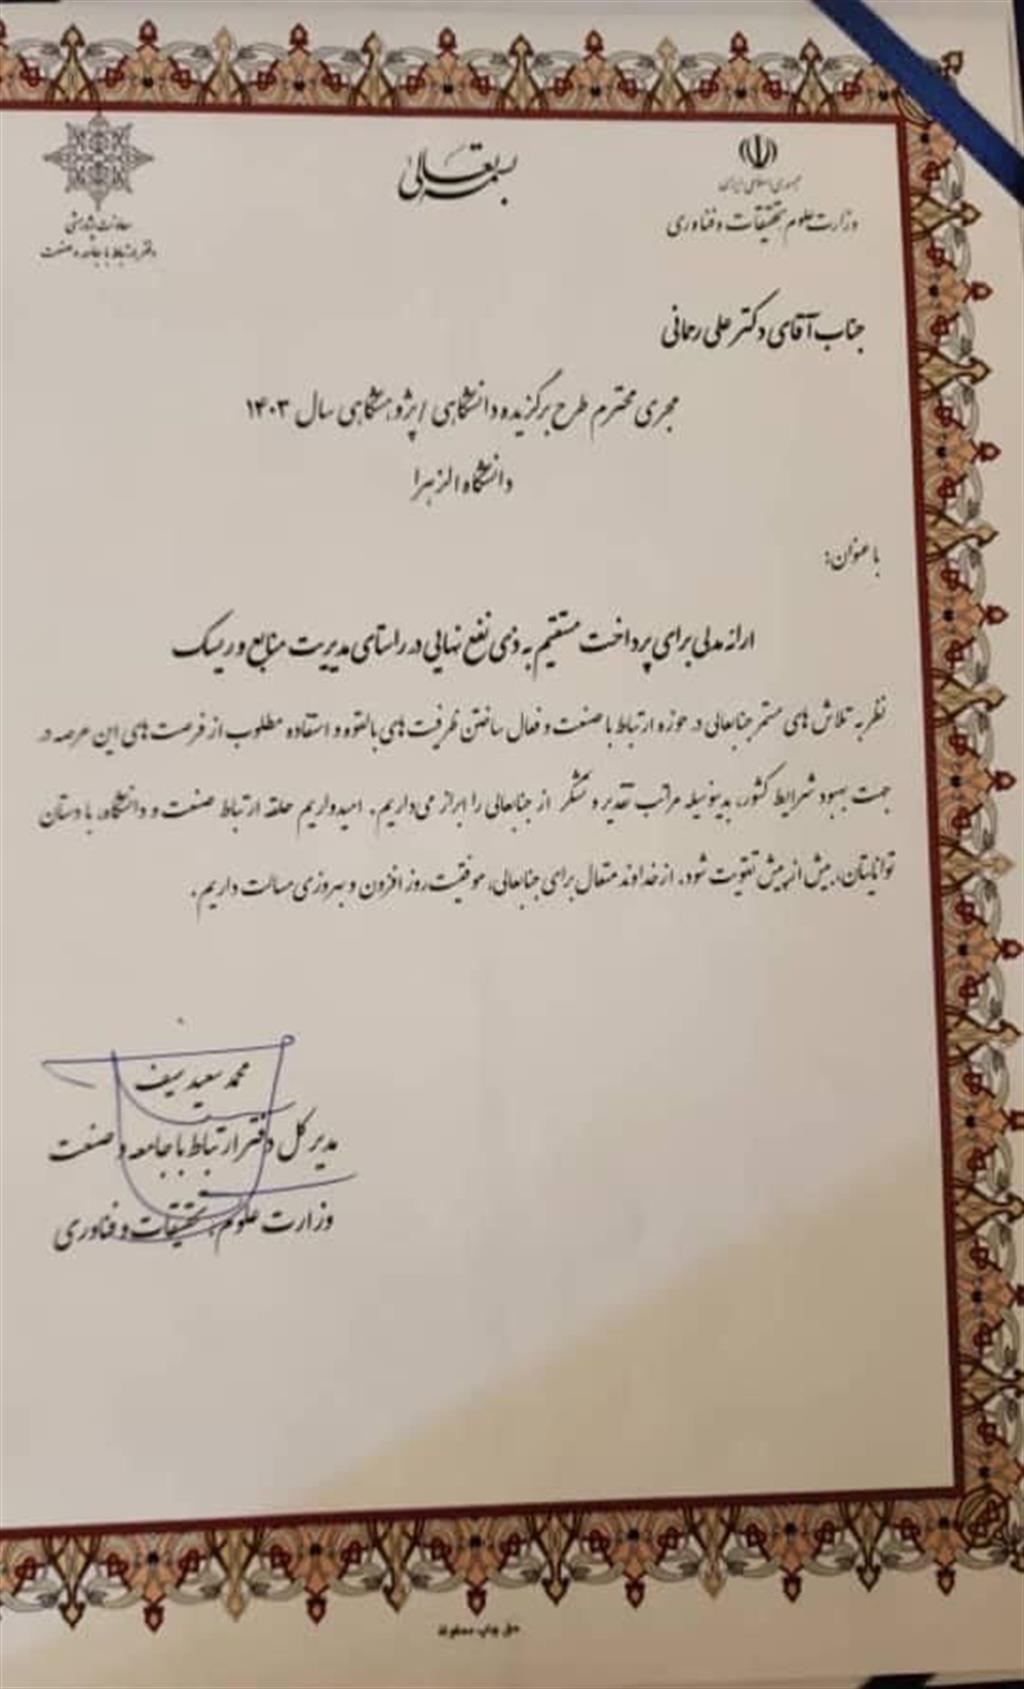 بسمه تعالی
جمهوری اسلامی ایران
وزارت علوم تحقیقات و فناوری
معاونت پژوهشی
دفتر ارتباط با جامعه و صنعت
جناب آقای دکتر علی رحمانی
مجری محترم طرح برگزیده دانشگاهی / پژوهشگاهی سال ۱۴۰۳
دانشگاه الزهرا
با عنوان:
ارائه مدلی برای پرداخت مستقیم به ذی نفع نهایی در راستای مدیریت منابع و ریسک
نظر به تلاش های مستمر جنابعالی در حوزه ارتباط با صنعت و فعال ساختن ظرفیت های بالقوه و استفاده مطلوب از فرصت های این عرصه در
جهت بهبود شرایط کشور، بدینوسیله مراتب تقدیر و تشکر از جنابعالی را ابراز می داریم. امیدواریم حلقه ارتباط صنعت و دانشگاه، با دستان
توانایتان، بیش از پیش تقویت شود. از خداوند متعال برای جنابعالی، موفقیت روز افزون و بهروزی مسالت داریم.
محمد سعید سیف
مدیر کل دفتر ارتباط با جامعه و صنعت
وزارت علوم، تحقیقات و فناوری
حق چاپ محفوظ